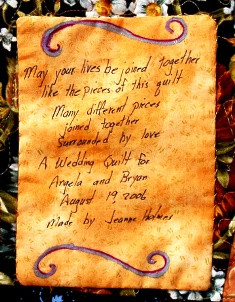 May your lives be joined together
like the pieces of this quilt
Many different pieces
joined together
Surrounded by love
A Wedding Quilt for
Angela and Bryan
August 19 2006
Made by Jeanne Holmes